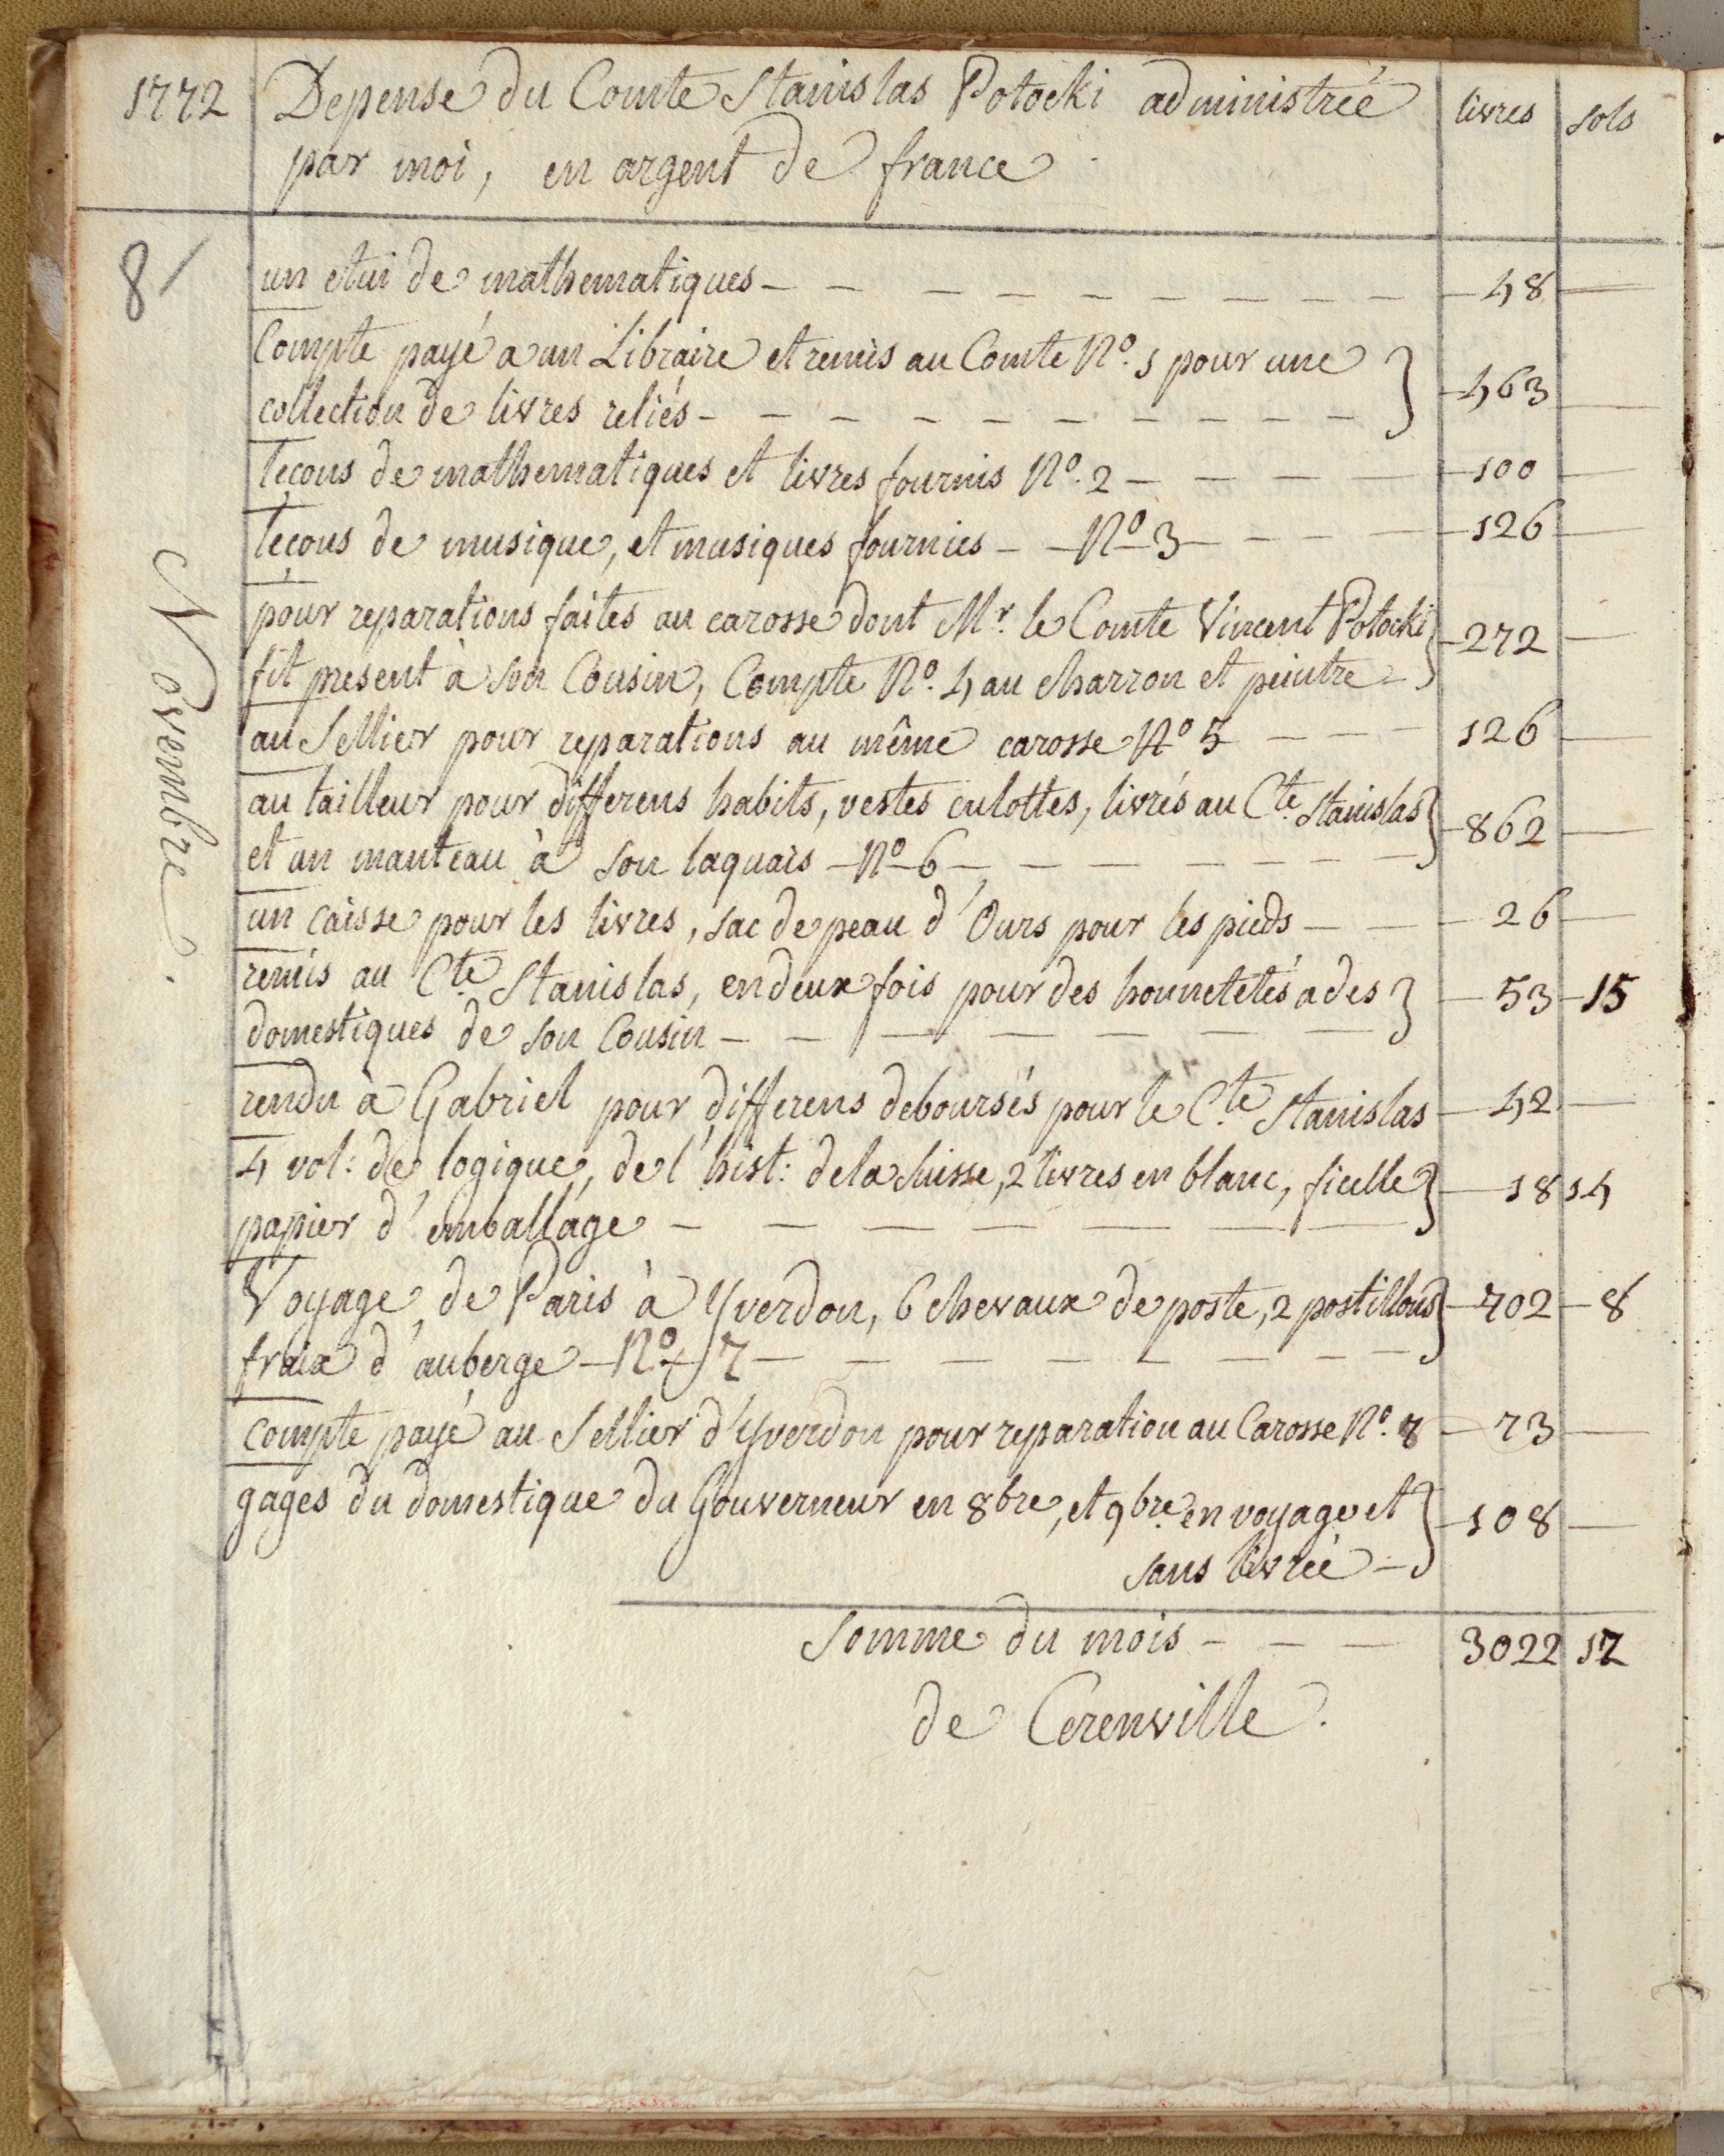 1772 Depense du Comte Stanislas Potocki administrée livres sols
par moi, en argent de france
8
Novembre.
un etui de mathematiques - - - - - - - - - 48
Compte payé a un Libraire et remis au Comte Nº. 1 pour une
collection de livres reliés - - - - - - - - - - } 463
leçons de mathematiques et livres fournis Nº. 2 - - - - 100
leçons de musique, et musiques fournies - - Nº 3 - - - - 126
pour reparations faites au carosse dont Mr. le Comte Vincent Potocki
fit present à son Cousin, Compte Nº. 4 au charron et peintre - } 272
au Sellier pour reparations au même carosse Nº 5 - - - 126
au tailleur pour differens habits, vestes culottes, livrés au Cte. Stanislas
et un manteau à son laquais - Nº 6 - - - - - - - } 862
un caisse pour les livres, sac de peau d'Ours pour les pieds - - 26
remis au Cte Stanislas, en deux fois pour des honnetetés a des
domestiques de son Cousin - - - - - - - } 53 - 15
rendu à Gabriel pour differens deboursés pour le Cte. Stanislas - 42
4 vol: de logique, de l'hist: de la Suisse, 2 livres en blanc, ficelle
papier d'emballage - - - - - - - } 18 14
Voyage de Paris à Yverdon, 6 chevaux de poste, 2 postillons
fraix d'auberge - Nº 7 - - - - - - - } 702 - 8
compte payé au Sellier d'Yverdon pour reparation au Carosse Nº. 8 - 73
gages du domestique du Gouverneur en 8bre, et 9bre. en voyage et
sans livrée - } 108
Somme du mois - - - 3022 17
de Cerenville.